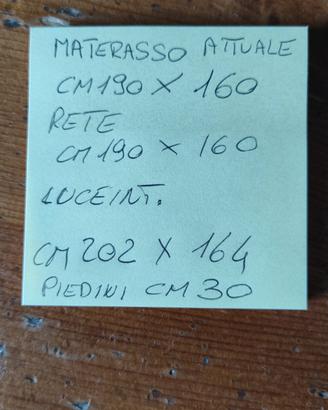 MATERASSO ATTUALE
CM 190 X 160
RETE
CM 190 X 160
LUCE INT.
CM 202 X 164
PIEDINI CM 30